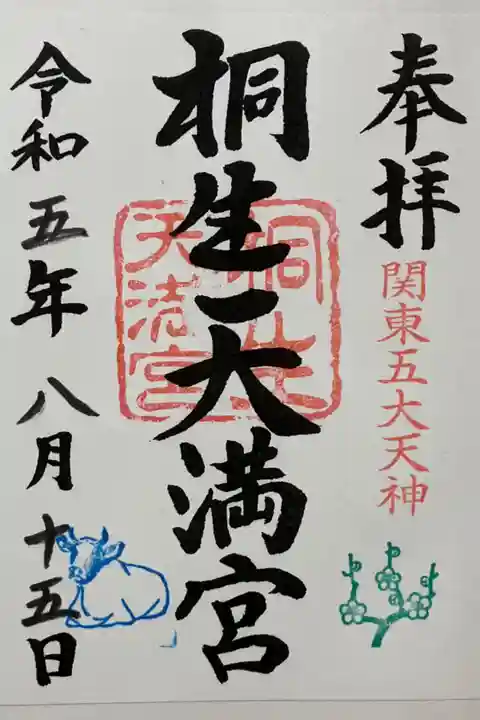 奉拝
関東五大天神
桐生天満宮
桐生
天満宮
令和五年 八月 十五日